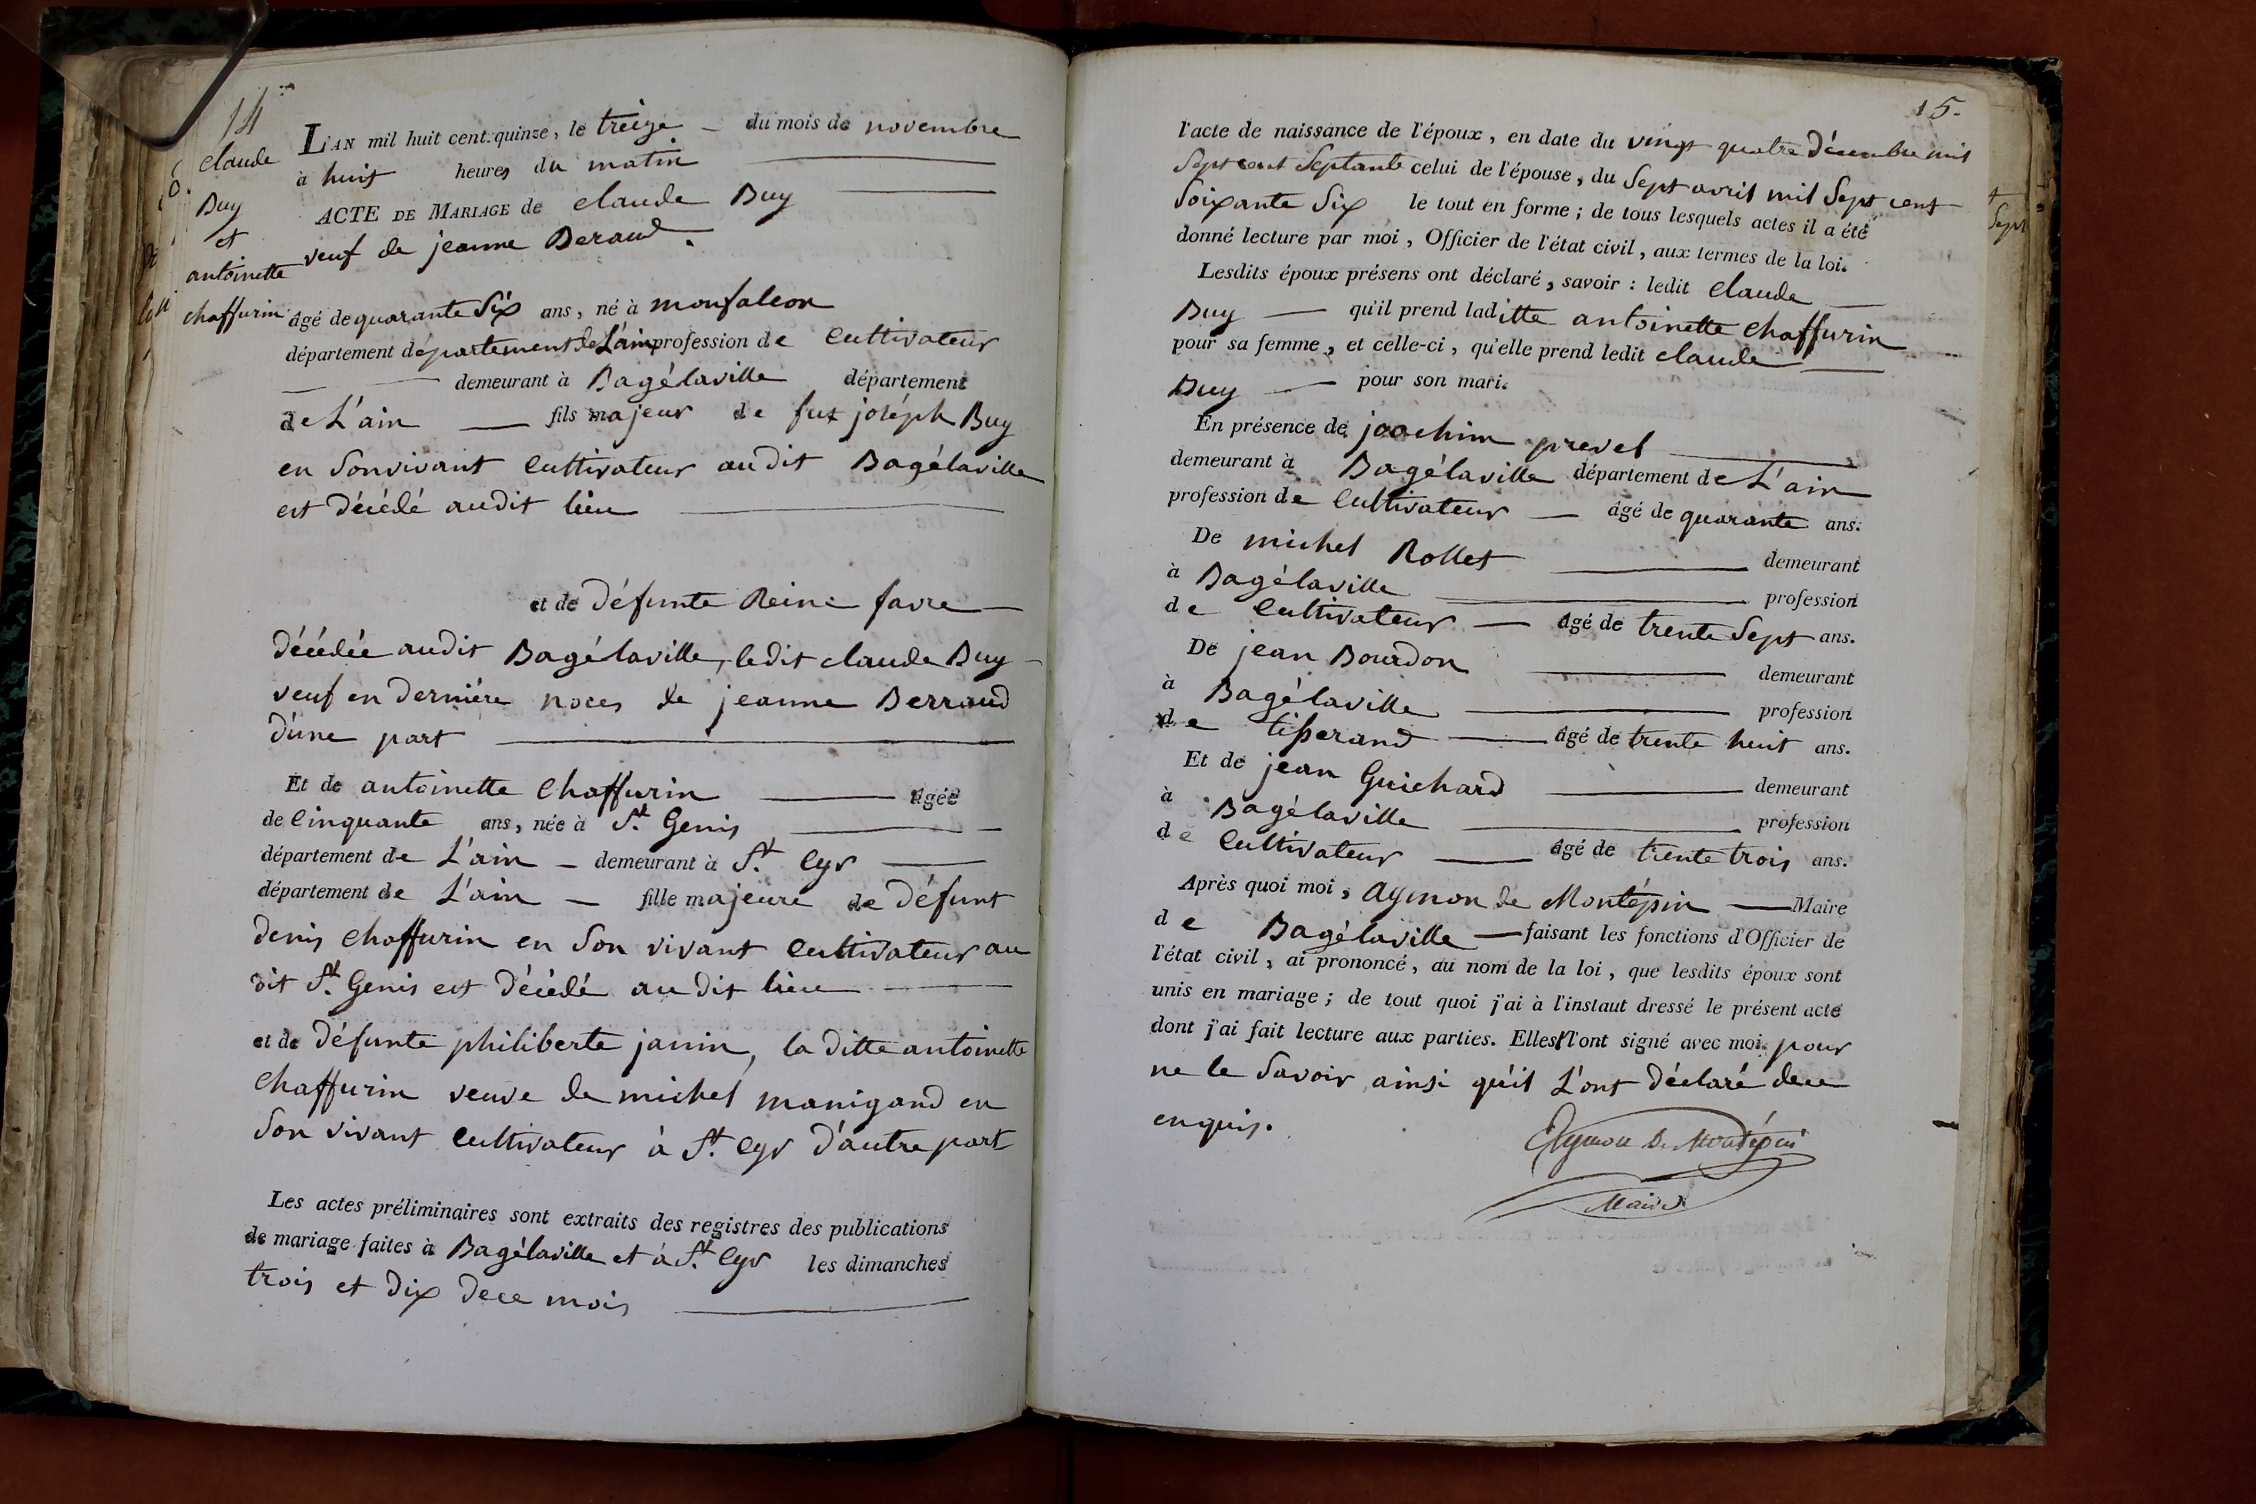 14
claude
Buy
et
antoinette
chaffurin
L'AN mil huit cent quinze, le treize du mois de novembre
à huit heures du matin
ACTE DE MARIAGE de claude Buy
veuf de jeanne Beraud.
âgé de quarante Six ans, né à monfalcon
département département de L'ain profession de Cultivateur
demeurant à Bagélaville département
de L'ain fils majeur de fut joséph Buy
en Son vivant Cultivateur audit Bagélaville
est décédé audit lieu
et de défunte Reine favre
décédée audit Bagélaville, ledit claude Buy
veuf en derniére noces de jeanne Berraud
d'une part
Et de antoinette Chaffurin âgée
de Cinquante ans, née à St. Genis
département de L'ain demeurant à St. Cyr
département de L'ain fille majeure de défunt
denis Chaffurin en Son vivant Cultivateur au
dit St. Genis est décédé au dit lieu
et de défunte philiberte janin, la ditte antoinette
Chaffurin veuve de michel manigand en
Son vivant Cultivateur à St. Cyr d'autre part
Les actes préliminaires sont extraits des registres des publications
de mariage faites à Bagélaville et à St. Cyr les dimanches
trois et dix de ce mois
15.
l'acte de naissance de l'époux, en date du vingt quatre décembre mil
Sept cent Septante celui de l'épouse, du Sept avril mil Sept cent
Soixante Six le tout en forme ; de tous lesquels actes il a été
donné lecture par moi, Officier de l'état civil, aux termes de la loi.
Lesdits époux présens ont déclaré, savoir : ledit Claude
Buy qu'il prend laditte antoinette Chaffurin
pour sa femme, et celle-ci, qu'elle prend ledit claude
Buy pour son mari.
En présence de joachim prevel
demeurant à Bagélaville département de L'ain
profession de Cultivateur âgé de quarante ans.
De michel Rollet demeurant
à Bagélaville profession
de Cultivateur âgé de trente Sept ans.
De jean Bourdon demeurant
à Bagélaville profession
de tisserand âgé de trente huit ans.
Et de jean Guichard demeurant
à Bagélaville profession
de Cultivateur âgé de trente trois ans.
Après quoi moi, Aymon de Montépin Maire
de Bagélaville faisant les fonctions d'Officier de
l'état civil, ai prononcé, au nom de la loi, que lesdits époux sont
unis en mariage ; de tout quoi j'ai à l'instant dressé le présent acte
dont j'ai fait lecture aux parties. Elles l'ont signé avec moi. pour
ne le Savoir ainsi qu'il L'ont déclaré de ce
enquis.
Aymon De Montépin
Maire
Sept